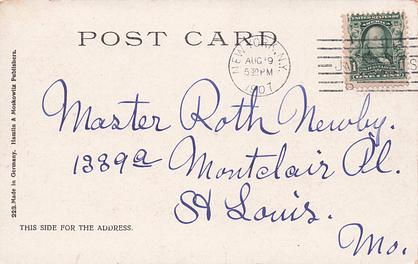 POST CARD
NEW YORK, N.Y.
AUG 9
5 30 PM
1907
1 1
Master Roth Newby.
1389a Montclair Pl.
St Louis.
Mo.
THIS SIDE FOR THE ADDRESS.
223. Made in Germany. Hamlin & Moskowitz Publishers.